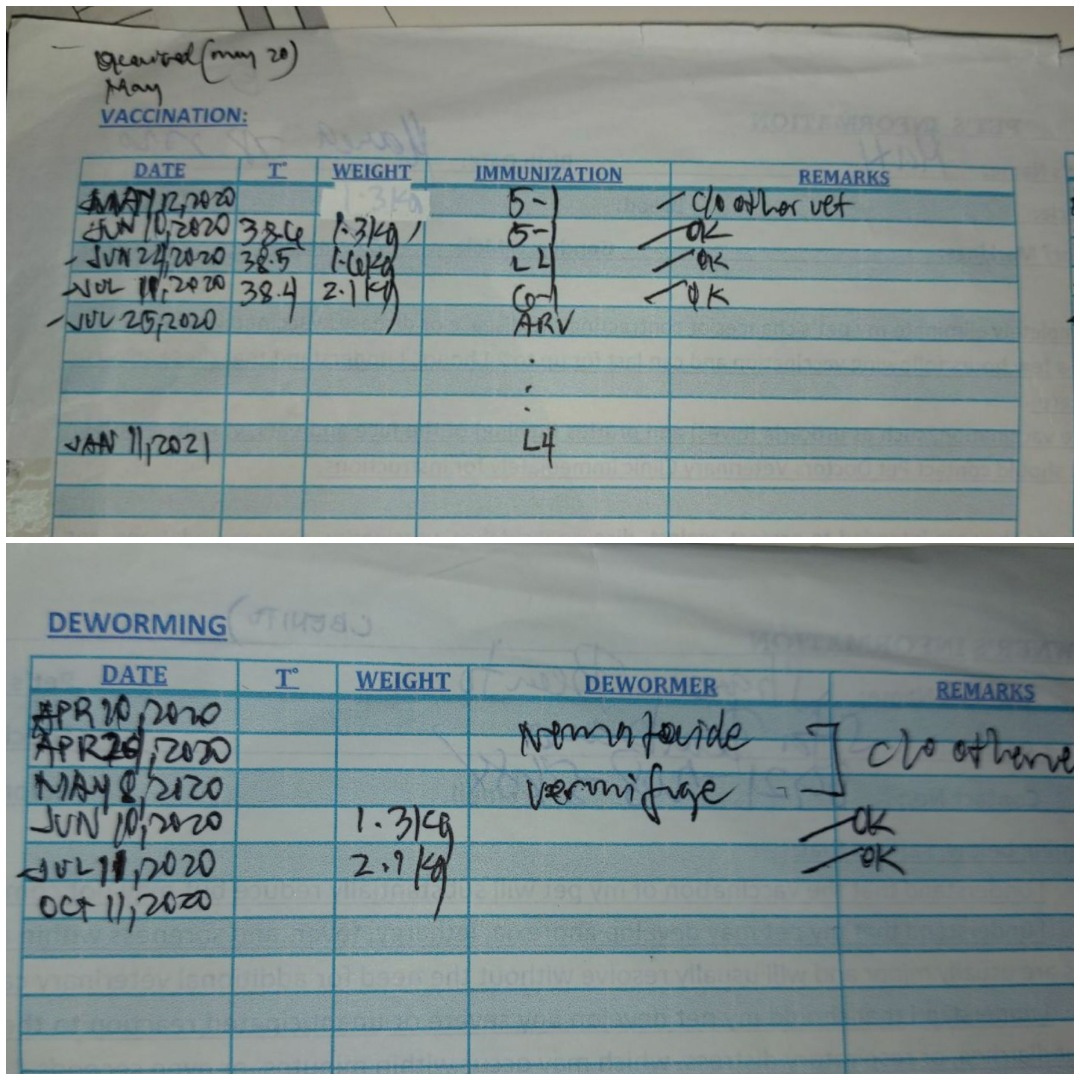 (may 20)
May
VACCINATION:
DATE T° WEIGHT IMMUNIZATION REMARKS
MAY 12, 2020 5-1 c/o other vet
JUN 10, 2020 38.6 1.3kg 5-1 OK
JUN 24, 2020 38.5 1.6kg L4 OK
JUL 11, 2020 38.4 2.1kg 6-1 OK
JUL 25, 2020 ARV
JAN 11, 2021 L4
DEWORMING
DATE T° WEIGHT DEWORMER REMARKS
APR 20, 2020
APR 26, 2020 Nematocide c/o other ve
MAY 8, 2020 vermifuge
JUN 10, 2020 1.3kg OK
JUL 11, 2020 2.1kg OK
OCT 11, 2020